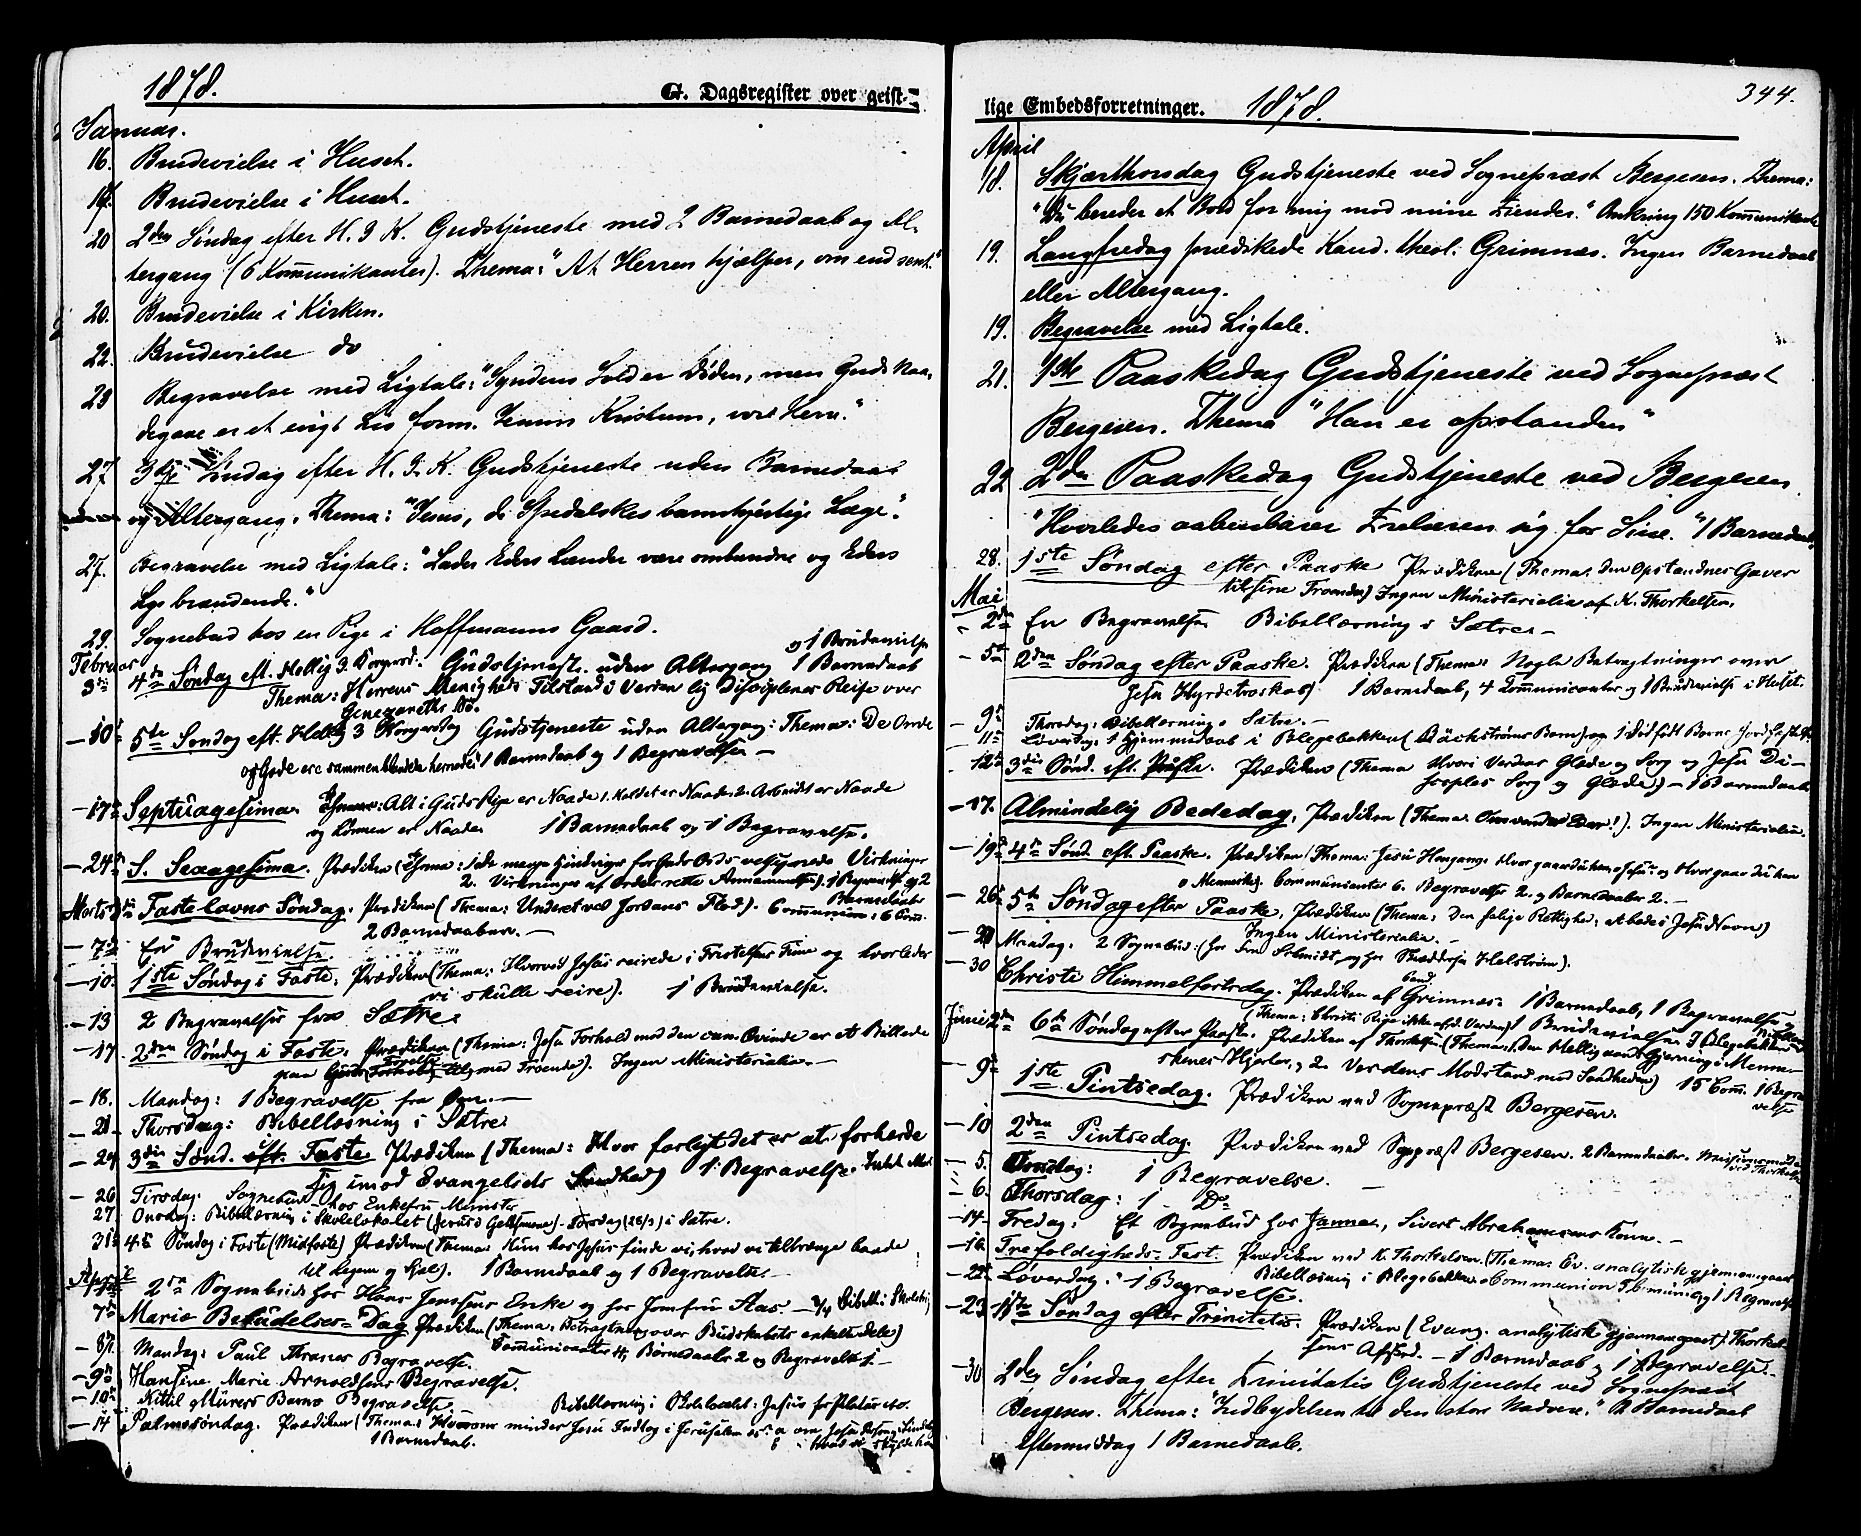 1878.
G. Dagsregister over geist-
Januar.
16. Brudevielse i Huset.
Brudevielse i Huset.
20 2den Søndag efter H. 3 K. Gudstjeneste med 2 Barnedaab og Al-
tergang (6 Kommunikanter). Thema: "At Herren hjælper, om end sent."
20. Brudevielse i Kirken.
22. Brudevielse do
23 Begravelse med Ligtale: "Syndens Sold er Døden, men Guds Naa-
degave er et evigt Liv formed. Jesum Kristum, vor Herre."
27. 3die Søndag efter H. 3. K. Gudstjeneste uden Barnedaab
og Altergang. Thema: "Jesus, de Spedalskes barmhjertige Læge."
27. Begravelse med Ligtale: "Lader Eders Lænder være ombundne og Eders
Lys brændende."
29. Sognebud hos en Pige i Hoffmanns Gaard.
og 1 Brudevielse
Februar
3die 4de Søndag eft. Hellig 3 Kongersd. Gudstjeneste uden Altergang 1 Barnedaab
Thema: Herrens Menigheds Tilstand i Verden lig Disciplenes Reise over
Genezareths Sø.
- 10de 5te Søndag eft. Hellig 3 Kongersdag Gudstjeneste uden Altergang: Thema: De Onde
og Gode ere sammenblandede hernede. 1 Barnedaab og 1 Begravelse -
- 17de Septuagesima. Thema: Alt i Guds Rige er Naade 1. Kaldet er Naade. 2. Arbeidet er Naade
og Lønnen er Naade. 1 Barnedaab og 1 Begravelse.
- 24de S. Sexagesima. Prædiken (Thema: 1 de mange Hindringer for Guds Ords velsignede Virkninger
2. Virkninger af Ordets rette Annammelse). 1 Begravelse og 2
Barnedaab
Marts 3die Fastelavns Søndag. Prædiken (Thema: Underet ved Jordans Flod). Communion: 6 Com.
2 Barnedaaber. -
- 7de En Brudevielse
- 10. 1ste Søndag i Faste. Prædiken (Thema: Hvorved Jesus seirede i Fristelsens Time og hvorledes
vi skulle seire). 1 Brudevielse.
- 13 2 Begravelser fra Sætre
- 17. 2den Søndag i Faste. Prædiken (Thema: Jesu Forhold mod den can. Qvinde er et Billede
paa Guds Førelse med Troende). Ingen Ministerialia. -
- 18. Mandag: 1 Begravelse fra Øen. -
- 21 Thorsdag: Bibellæsning i Sætre
- 24 3die Sønd. eft. Faste Prædiken (Thema: Hvor farligt det er at forhærde
sig imod Evangeliets Sandhed) 1 Begravelse.
- 26 Tirsdag. Sognebud hos Enkefru Minster
27. Onsdag: Bibellæsning i Skolelokalet (Jesus i Gethsemane) - Torsdag (28/3) i Sætre.
31te 4de Søndag i Faste (Midfaste) Prædiken (Thema: Kun hos Jesus finde vi, hvad vi tiltrænge baade
til Legeme og Sjæl). 1 Barnedaab og 1 Begravelse. -
April
2 Sognebud hos Hans Jenssens Enke og hos Jomfru Aas.
7de Mariæ Bebudelses-Dag Prædiken (Thema: Betragtning over Budskabets enkelte dele)
Communicanter 4, Børnedaaber 2 og Begravelse 1. -
- 8de Mandag: Paul Thranes Begravelse.
- 9de Hansine Marie Arnoldsens Begravelse.
- 10de Kittil Murers Barns Begravelse. Bibellæsning i Skolelocalet: Jesus for Pilatus etc.
- 14 Palmesøndag. Prædiken (Thema: Hvorom minder Jesu Indtog i Jerusalem os: a om Jesu Person
1 Barnedaab.

344.
lige Embedsforretninger. 1878.
April
18. Skjærthorsdag Gudstjeneste ved Sognepræst Bergesen. Thema:
"Du bereder et Bord for mig mod mine Fiender." Omkring 150 Kommunikanter
19. Langfredag prædikede Kand. theol. Grimnæs. Ingen Barnedaab
eller Altergang.
19. Begravelse med Ligtale.
21. 1ste Paaskedag Gudstjeneste ved Sognepræst
Bergesen. Thema "Han er opstanden"
22 2den Paaskedag Gudstjeneste ved Bergesen
"Hvorledes aabenbarer Frelseren sig for Sine." 1 Barnedaab
28. 1ste Søndag efter Paaske Prædiken (Thema: Den Opstandnes Gaver
til sine Troende) Ingen Ministerialia af K. Thorkelsen.
Mai
2den En Begravelse Bibellæsning i Sætre -
- 5te 2den Søndag efter Paaske. Prædiken (Thema: Nogle Betragtninger over
Jesu Hyrdetroskab) 1 Barnedaab, 4 Communicanter og 1 Brudevielse i Huset.
- 9de Thorsdag: Bibellæsning i Sætre. -
- 11te Løverdag: 1 Hjemmedaab i Blegebakken (Bäckstrøms Barn) og 1 dødfødt Barns Jordfæstelse.
- 12te 3die Sønd. eft. Paaske. Prædiken (Thema Hvori Verdens Glæde og Sorg og Jesu Di-
sciples Sorg og Glæde) - 1 Barnedaab
- 17. Almindelig Bededag. Prædiken (Thema. Omvender Eder!). Ingen Ministerialia.
- 19de 4de Sønd. eft. Paaske. Prædiken (Thema: Jesu Hengang: Hvor gaar du hen o Jesu? og Hvor gaar du hen
o Menneske). Communicanter 6. Begravelse 2. og Barnedaaber 2. -
- 26de 5te Søndag efter Paaske. Prædiken (Thema: Den salige Rettighed, at bede i Jesu Navn)
Ingen Ministerialia. -
Mandag: 2 Sognebud: (hos Fru Schmidt, og hos Helstrøm).
- 30 Christi Himmelfartsdag. Prædiken af Cand. Grimnæs: 1 Barnedaab, 1 Begravelse
(Thema: Christi Rige ikke af d. Verden)
Juni 2den 6te Søndag efter Paaske. Prædiken af Thorkelsen (Thema: 1. Den Hellig aands Gjerning i Menne-
skenes Hjerter, og 2. Verdens Modstand mod Sandheden) 15 Com. 1 Begra-
velse
- 9de 1ste Pintsedag. Prædiken ved Sognepræst Bergesen.
- 10 2den Pintsedag. Prædiken ved Sognepræst Bergesen. 2 Barnedaaber.
- 5. Onsdag: 1 Begravelse. -
- 6. Thorsdag: 1 Do
- 14 - Fredag: Et Sognebud hos Janna, Sivert Abrahamsens Kone. -
- 16. Trefoldigheds-Fest. Prædiken ved K. Thorkelsen. (Thema: Ev. analytisk gjennemgaaet
Bibellæsning i Blegebakken. Communion og 1 Begravelse
- 22de Løverdag: 1 Begravelse.
- 23 1ste Søndag efter Trinitatis. Prædiken (Evang. analytisk gjennemgaaet) Thorkel-
sens Afsked. - 1 Barnedaab og 1 Begravelse. -
- 30 2den Søndag efter Trinitatis Gudstjeneste ved Sognepræst
Bergesen. Thema: "Indbydelsen til den store Nadvere." Barnedaab
Eftermiddag 1 Barnedaab.